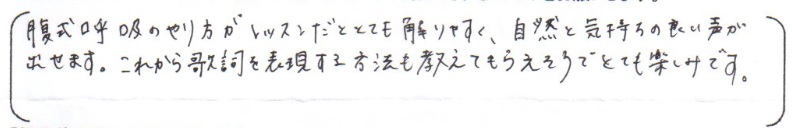 腹式呼吸のやり方がレッスンだととても解りやすく、自然と気持ちの良い声が
出せます。これから歌詞を表現する方法も教えてもらえそうでとても楽しみです。